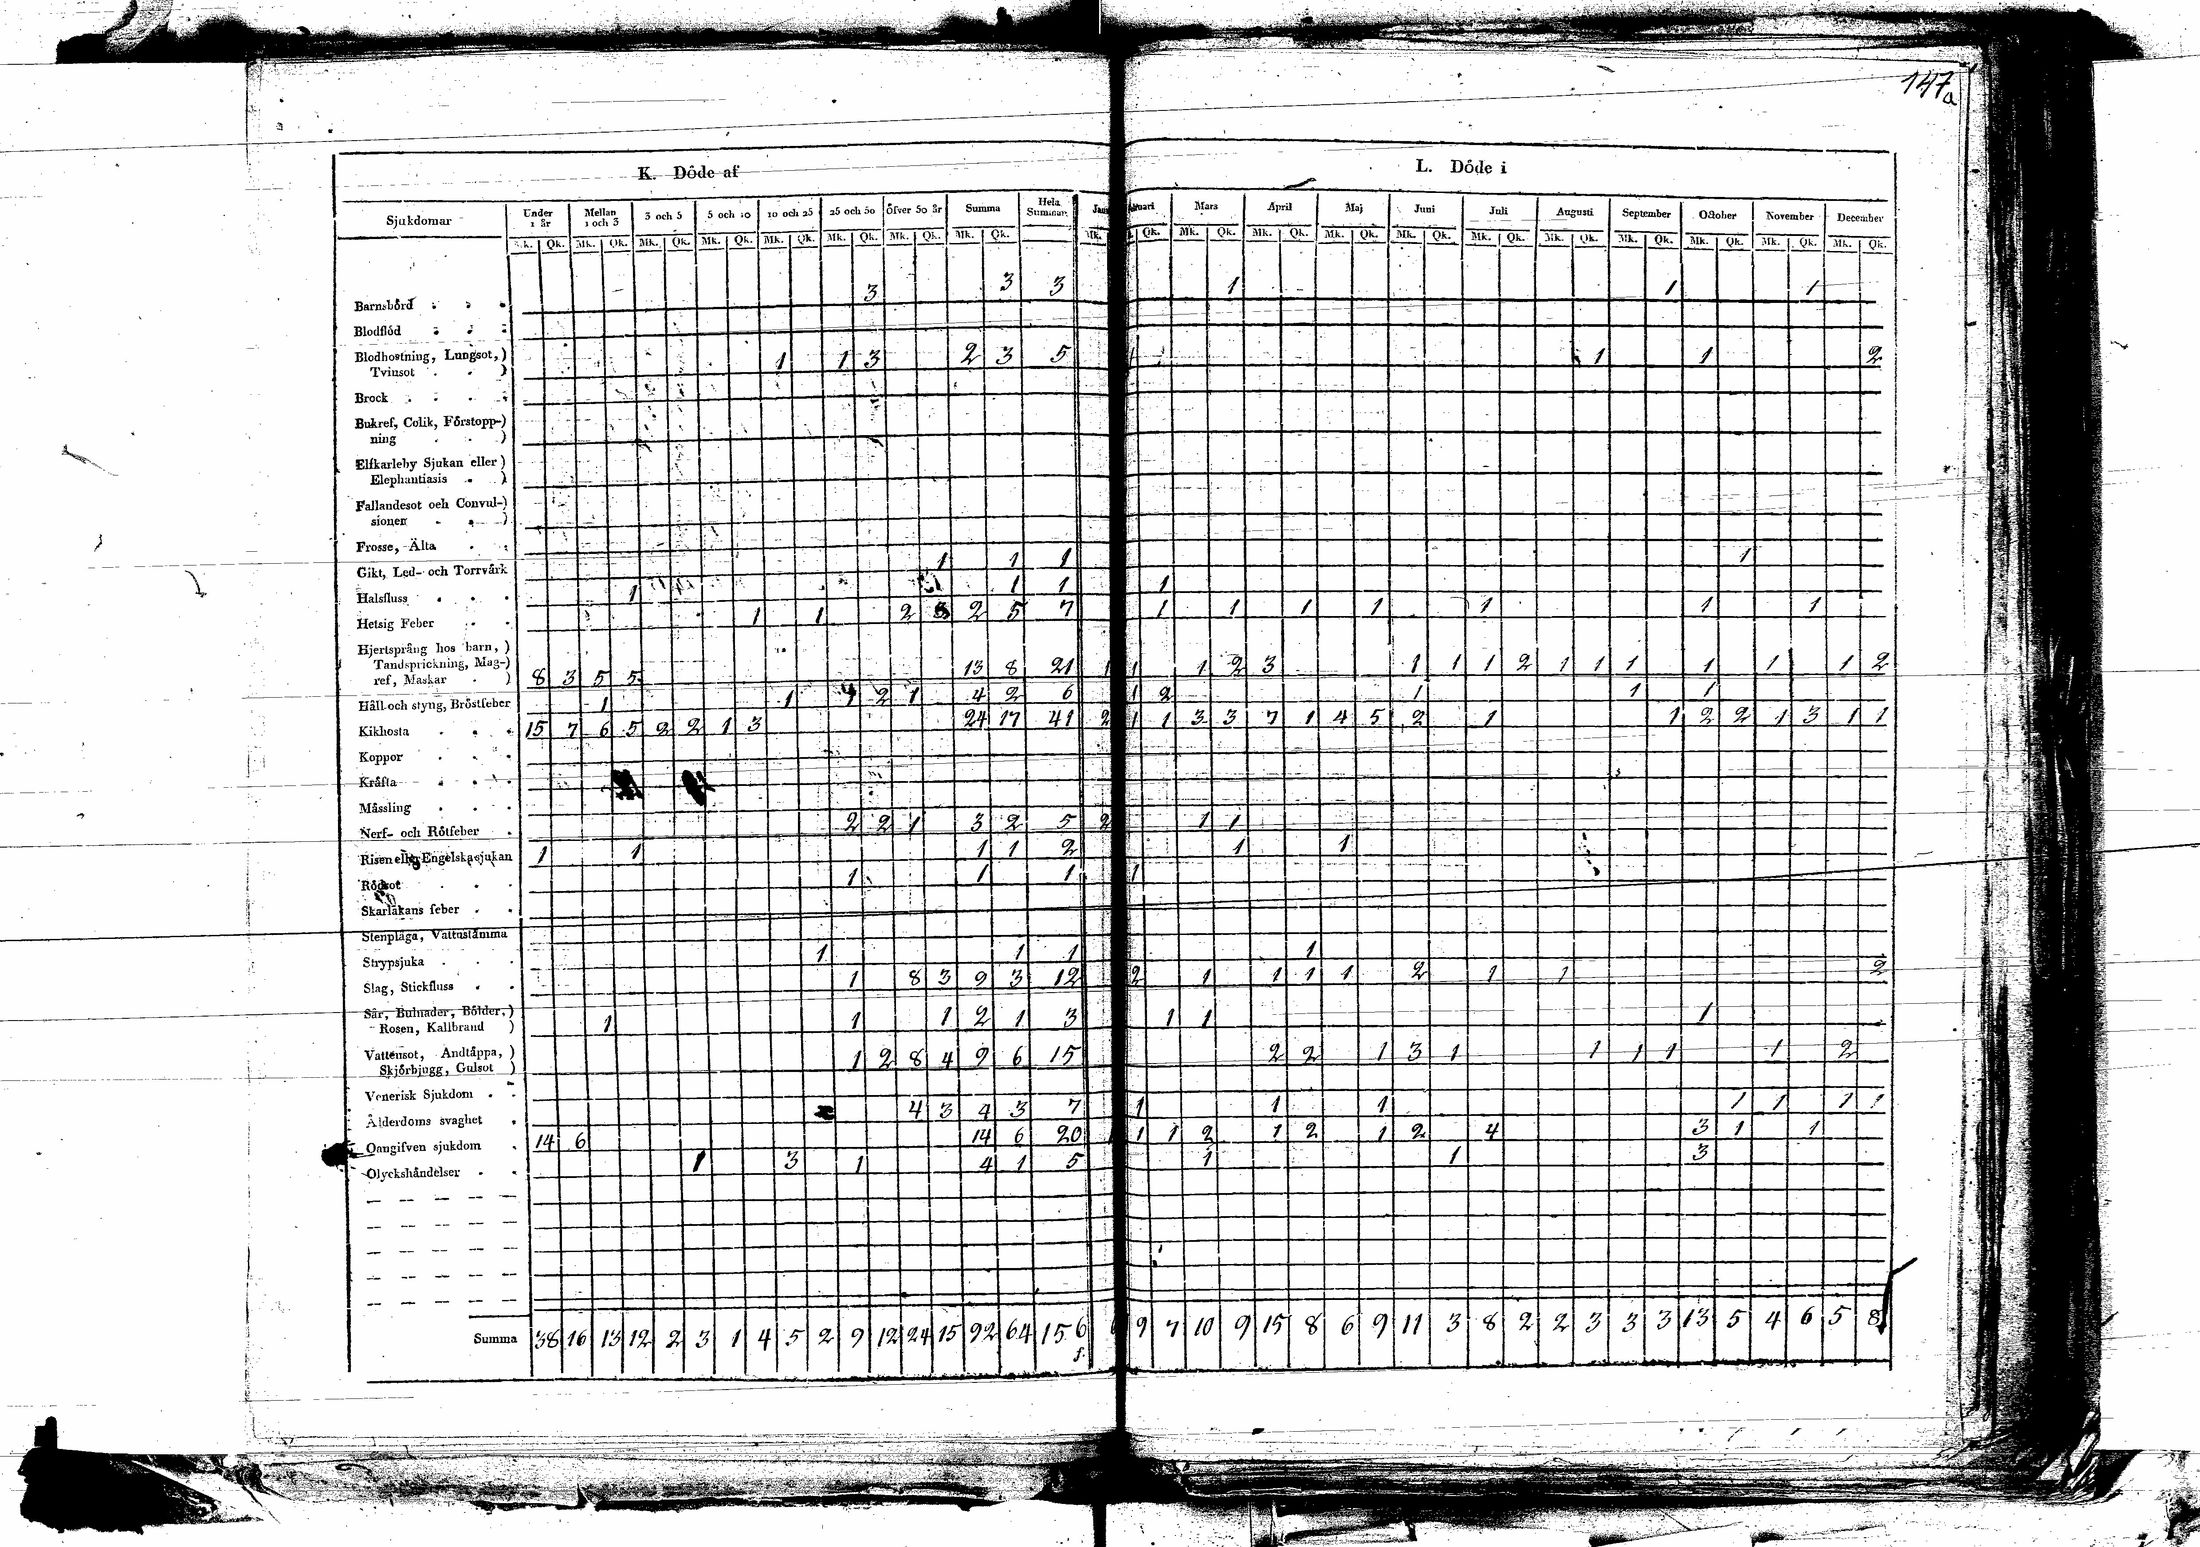 147a
K. Döde af
L. Döde i
Sjukdomar Under 1 år Mellan 1 och 3 3 och 5 5 och 10 10 och 25 25 och 50 Öfver 50 år Summa Hela Summan Mars April Maj Juni Juli Augusti September October November December
Mk. Qk. Mk. Qk. Mk. Qk. Mk. Qk. Mk. Qk. Mk. Qk. Mk. Qk. Mk. Qk. Mk. Qk. Mk. Qk. Mk. Qk. Mk. Qk. Mk. Qk. Mk. Qk. Mk. Qk. Mk. Qk. Mk. Qk. Mk. Qk. Mk. Qk.
Barnsbörd 3 3 3 1 1 1
Blodflöd
Blodhostning, Lungsot,)
Tvinsot 1 1 3 2 3 5 1 1 1 2
Brock
Bukref, Colik, Förstopp-)
ning
Elfkarleby Sjukan eller)
Elephantiasis
Fallandesot och Convul-)
sioner
Frosse, Älta
Gikt, Led- och Torrvärk 1 1 1 1
Halsfluss 1 1 1 1
Hetsig Feber 1 1 2 3 2 5 7 1 1 1 1 1 1 1
Hjertsprång hos barn,)
Tandsprickning, Mag-)
ref, Maskar 8 3 5 5 13 8 21 1 1 1 2 3 1 1 1 2 1 1 1 1 1 1 2
Håll och styng, Bröstfeber 1 1 2 1 4 2 6 1 2 1 1 1
Kikhosta 15 7 6 5 2 2 1 3 24 17 41 2 1 1 3 3 7 1 4 5 2 1 1 2 2 1 3 1 1
Koppor
Kräfta
Mässling
Nerf- och Rötfeber 2 2 1 3 2 5 2 1 1
Risen eller Engelska sjukan 1 1 1 1 2 1 1
Rödsot 1 1 1 1
Skarlakans feber
Stenplåga, Vattustämma
Strypsjuka 1 1 1 1
Slag, Stickfluss 1 8 3 9 3 12 2 1 1 1 1 2 1 1 2
Sår, Bulnader, Bölder,)
Rosen, Kallbrand 1 1 1 2 1 3 1 1 1
Vattensot, Andtäppa,)
Skjörbjugg, Gulsot 1 2 8 4 9 6 15 2 2 1 3 1 1 1 1 1 2
Venerisk Sjukdom
Ålderdoms svaghet 4 3 4 3 7 1 1 1 1 1 1 1
Oangifven sjukdom 14 6 14 6 20 1 1 1 2 1 2 1 2 4 3 1 1
Olyckshändelser 1 3 1 4 1 5 1 1 3
Summa 38 16 13 12 2 3 1 4 5 2 9 12 24 15 92 64 156 9 7 10 9 15 8 6 9 11 3 8 2 2 3 3 3 13 5 4 6 5 8